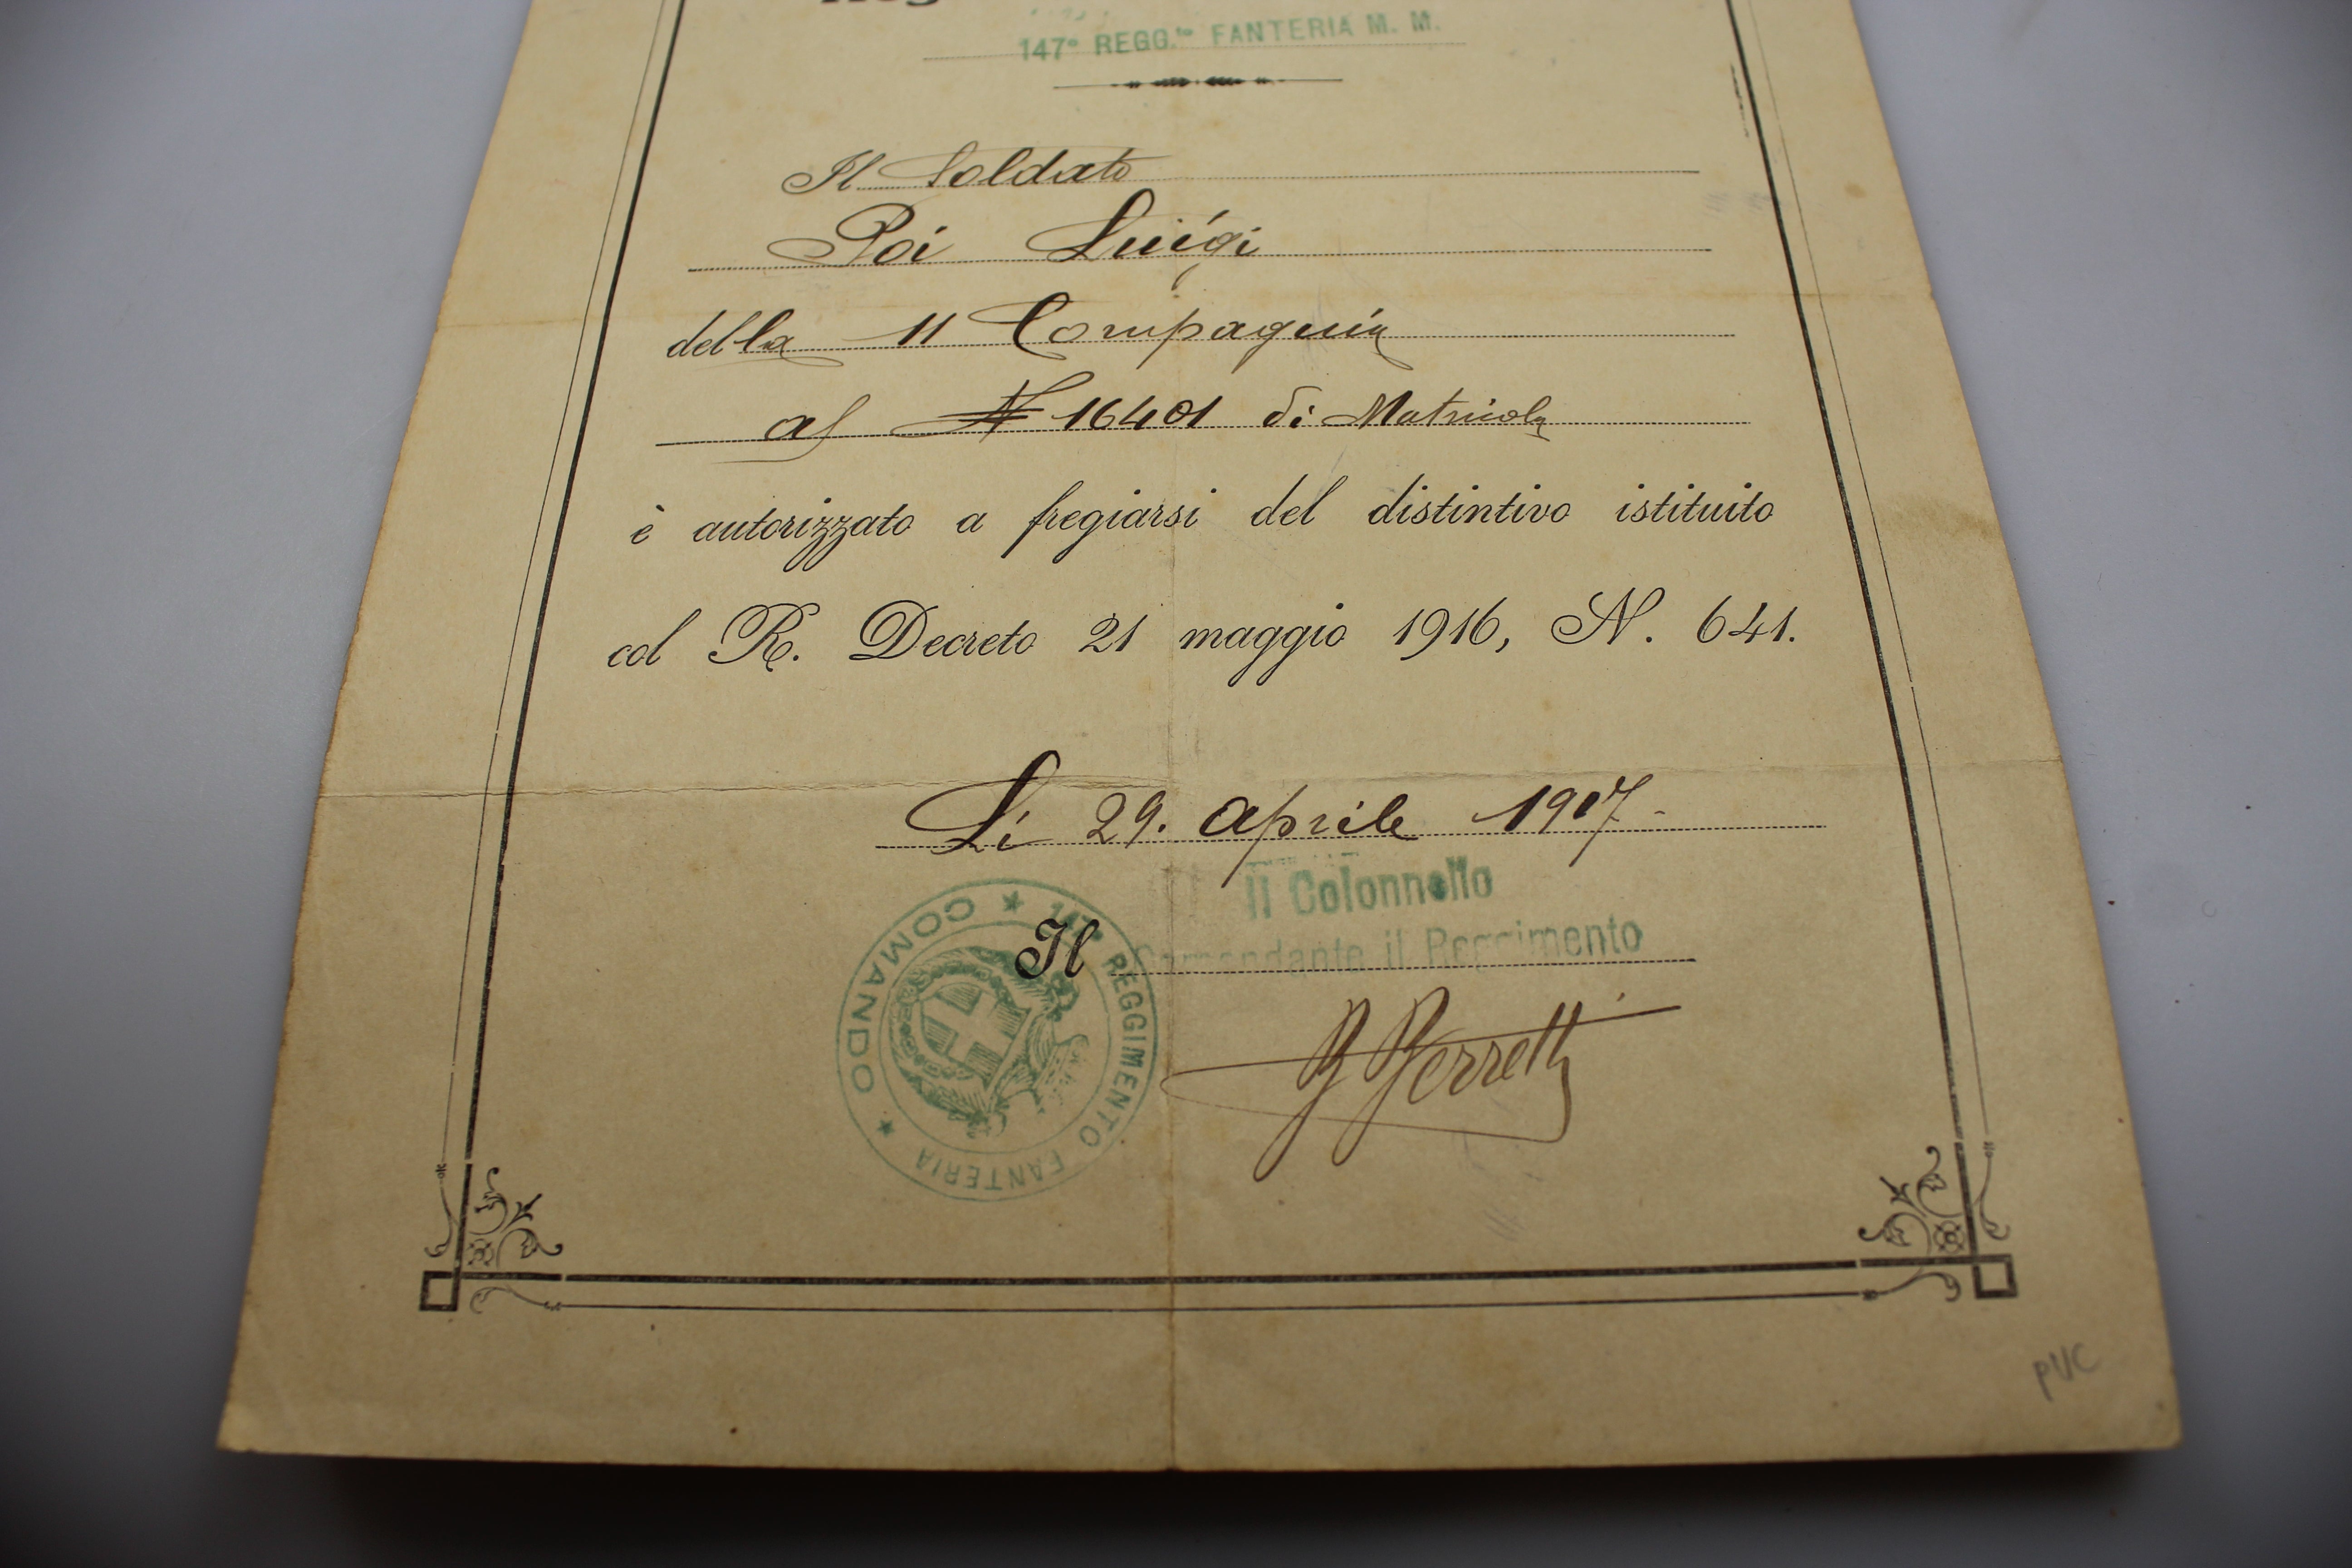 147° REGG.to FANTERIA M. M.
Il Soldato
Poi Luigi
della 11 Compagnia
al N 16401 di Matricola
è autorizzato a fregiarsi del distintivo istituito
col R. Decreto 21 maggio 1916, N. 641.
Li 29. Aprile 1917-
Il Colonnello
Il Comandante il Reggimento
COMANDO ★ 147° REGGIMENTO FANTERIA ★
PVC